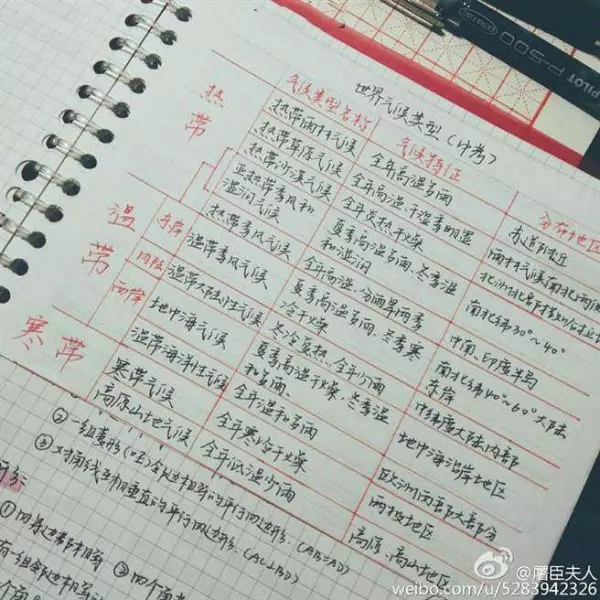 世界气候类型（中考）
气候类型名称 气候特征 分布地区
热带
热带雨林气候 全年高温多雨 赤道附近
热带草原气候 全年高温、干湿季明显 雨林气候南北两侧
热带沙漠气候 全年炎热干燥
亚热带季风和湿润气候 夏季高温多雨、冬季温和湿润 南北纬30°~40°
热带季风气候 全年高温、分雨旱两季 中南、印度半岛
温带
东岸 温带季风气候 夏季高温多雨、冬季寒冷干燥 南北纬40°~60°大陆东岸
内陆 温带大陆性气候 冬冷夏热、全年少雨 中纬度大陆内部
西岸 地中海气候 夏季高温干燥、冬季温和多雨、 地中海沿岸地区
温带海洋性气候 全年温和多雨 欧洲西部大部分
寒带
寒带气候 全年寒冷干燥 两极地区
高原山地气候 全年低温少雨 高原、高山地区
一组邻边相等的平行四边形.(AB=AD)
③对角线互相垂直的平行四边形.(AC⊥BD)
①四条边都相等
②四个角
有一组邻边相等
PILOT P-500
@屠臣夫人
weibo.com/u/5283942326